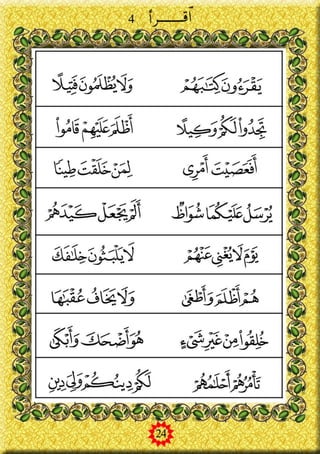 ٱقْرَأْ 4
يَقْرَءُونَ كِتَٰبَهُمْ وَلَا يُظْلَمُونَ فَتِيلًا
تَجِدُوا۟ لَكُمْ وَكِيلًا أَظْلَمَ عَلَيْهِمْ قَامُوا۟
أَفَعَصَيْتَ أَمْرِى لِمَنْ خَلَقْتَ طِينًا
يُرْسَلُ عَلَيْكُمَا شُوَاظٌ أَلَمْ يَجْعَلْ كَيْدَهُمْ
يَوْمَ لَا يُغْنِى عَنْهُمْ لَا يَلْبَثُونَ خِلَٰفَكَ
هُمْ أَظْلَمَ وَأَطْغَىٰ وَلَا يَخَافُ عُقْبَٰهَا
خُلِقُوا۟ مِنْ غَيْرِ شَىْءٍ هُوَ أَضْحَكَ وَأَبْكَىٰ
تَأْمُرُهُمْ أَحْلَٰمُهُمْ لَكُمْ دِينُكُمْ وَلِىَ دِينِ
24